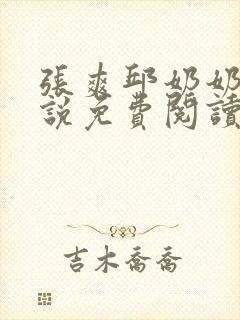 張爽邱奶奶
說免費閱讀
吉木喬喬